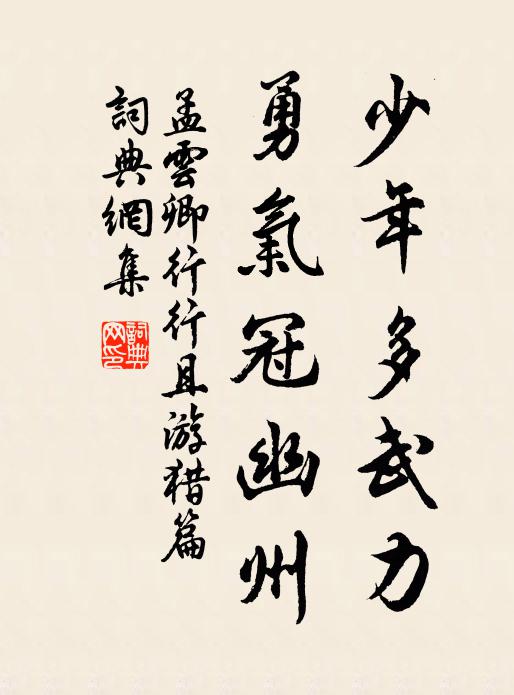 少年多武力
勇氣冠幽州
孟雲卿行行且游猎篇
詞典網集
詞典网印